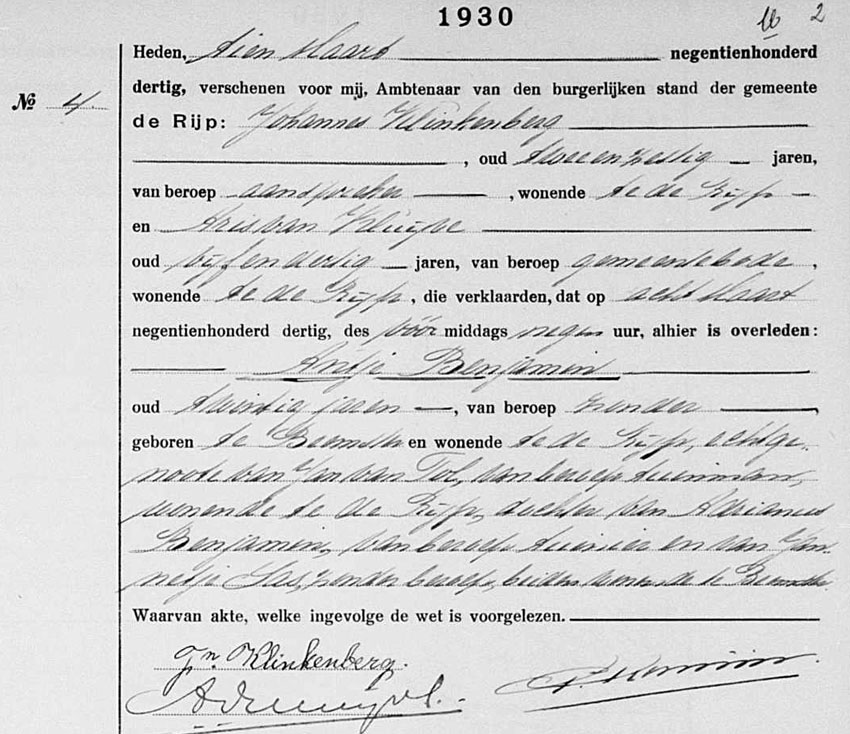 1930
2
Heden, tien Maart negentienhonderd
No 4. dertig, verschenen voor mij, Ambtenaar van den burgerlijken stand der gemeente
de Rijp: Johannes Klinkenberg
, oud tweeenzestig jaren,
van beroep aanspreker , wonende te de Rijp
en Aris van
oud vijfendertig jaren, van beroep gemeentebode ,
wonende te de Rijp, die verklaarden, dat op acht Maart
negentienhonderd dertig, des vóór middags negen uur, alhier is overleden:
Antje Benjamin
oud twintig jaren , van beroep zonder ,
geboren te Beemster en wonende te de Rijp, echtge-
noote van Jan van Tol, van beroep tuinman,
wonende te de Rijp, dochter van Adrianus
Benjamin, van beroep tuinier en van Jan-
netje zonder beroep, beiden wonende te Beemster.
Waarvan akte, welke ingevolge de wet is voorgelezen.
Jn. Klinkenberg.